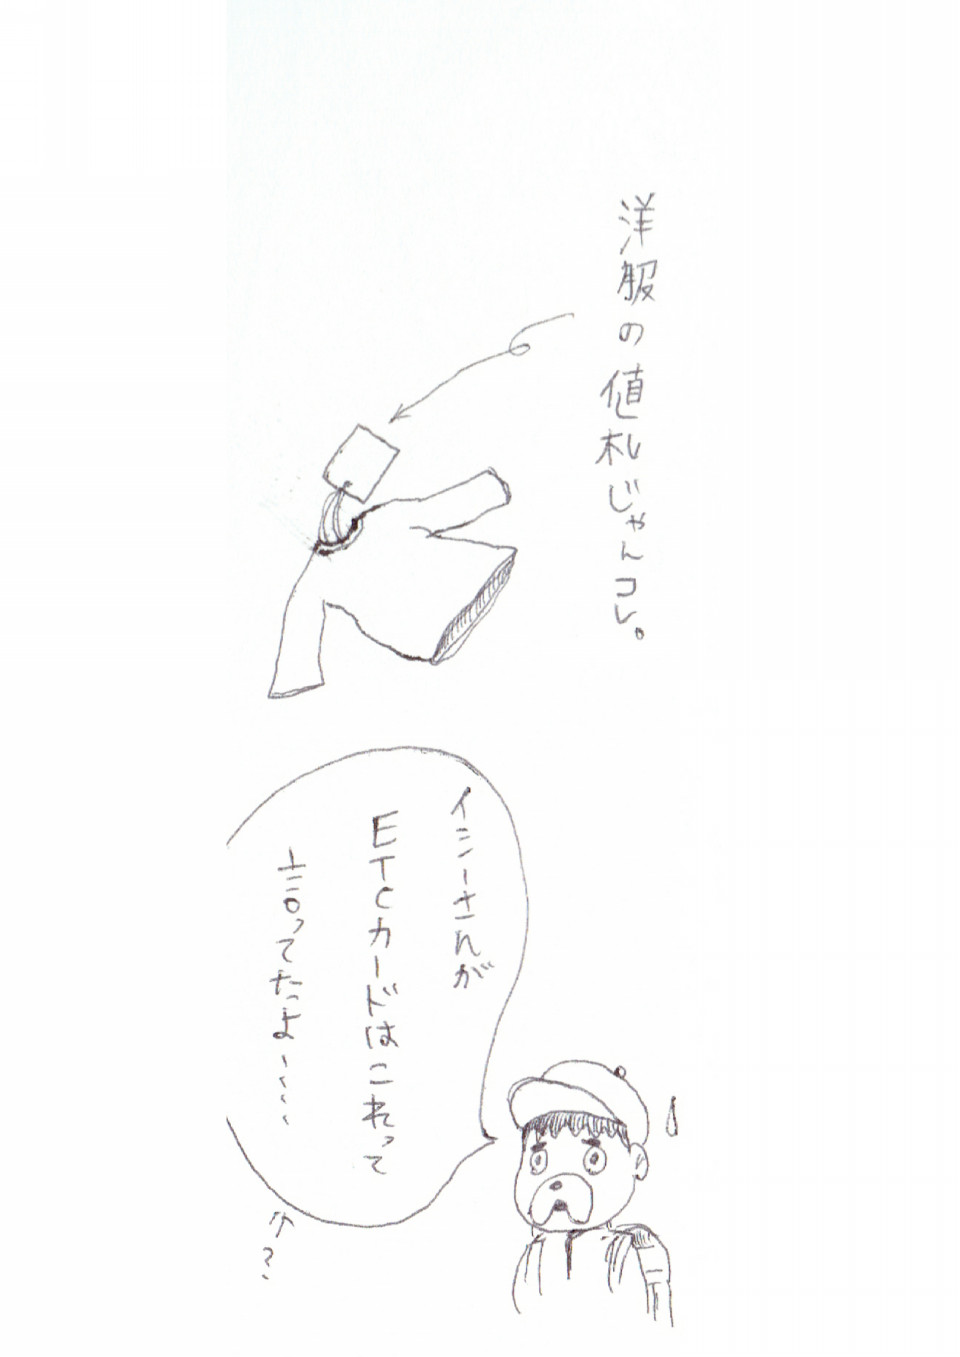 洋服の値札じゃんコレ。
イシーさんが
ETCカードはこれって
言ってたよ、、、、